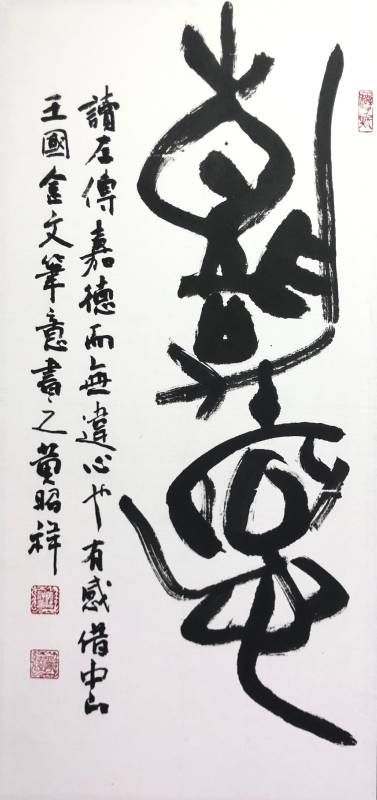 嘉德
讀左傳嘉德而無違心也有感借中山
王國金文筆意書之黃昭祥